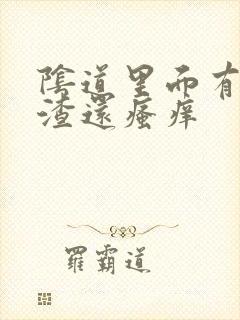 陰道里面有
渣還瘙痒
羅霸道